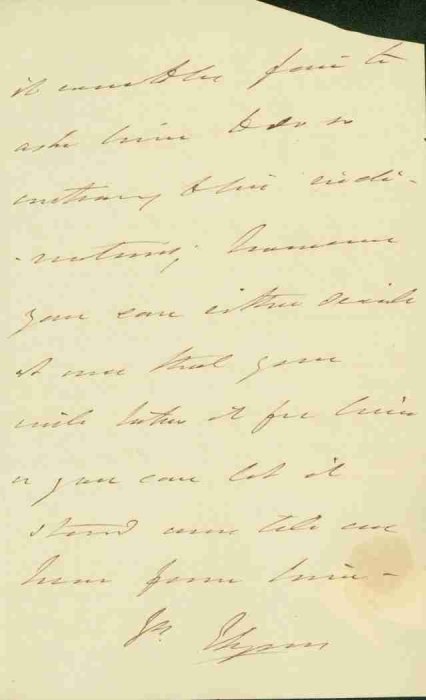 it would be fair to
ask him to do so
contrary to his incli-
-nations; however
you can either decide
at once that you
will take it for him
or you can let it
stand over till we
hear from him -
Yrs